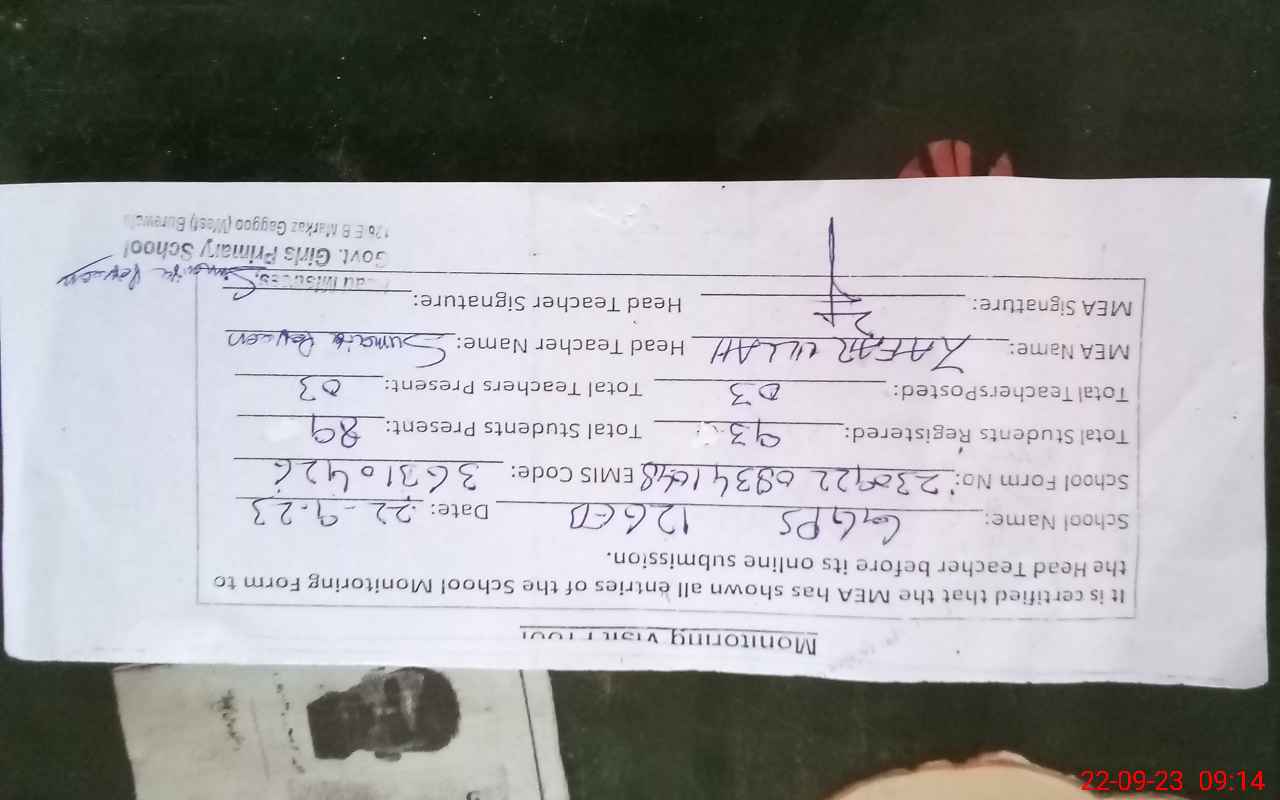 Monitoring Visit Proof
It is certified that the MEA has shown all entries of the School Monitoring Form to
the Head Teacher before its online submission.
School Name: GGPS 126 EB Date: 22-9-23
School Form No: 230922 0834 EMIS Code: 36310426
Total Students Registered: 93 Total Students Present: 89
Total Teachers Posted: 03 Total Teachers Present: 03
MEA Name: ZAFAR ULLAH Head Teacher Name: Sumaira Perveen
MEA Signature: Head Teacher Signature: Sumaira Perveen
Head Mistress,
Govt. Girls Primary School
126 E.B Markaz Gaggoo (West) Burewala
22-09-23 09:14